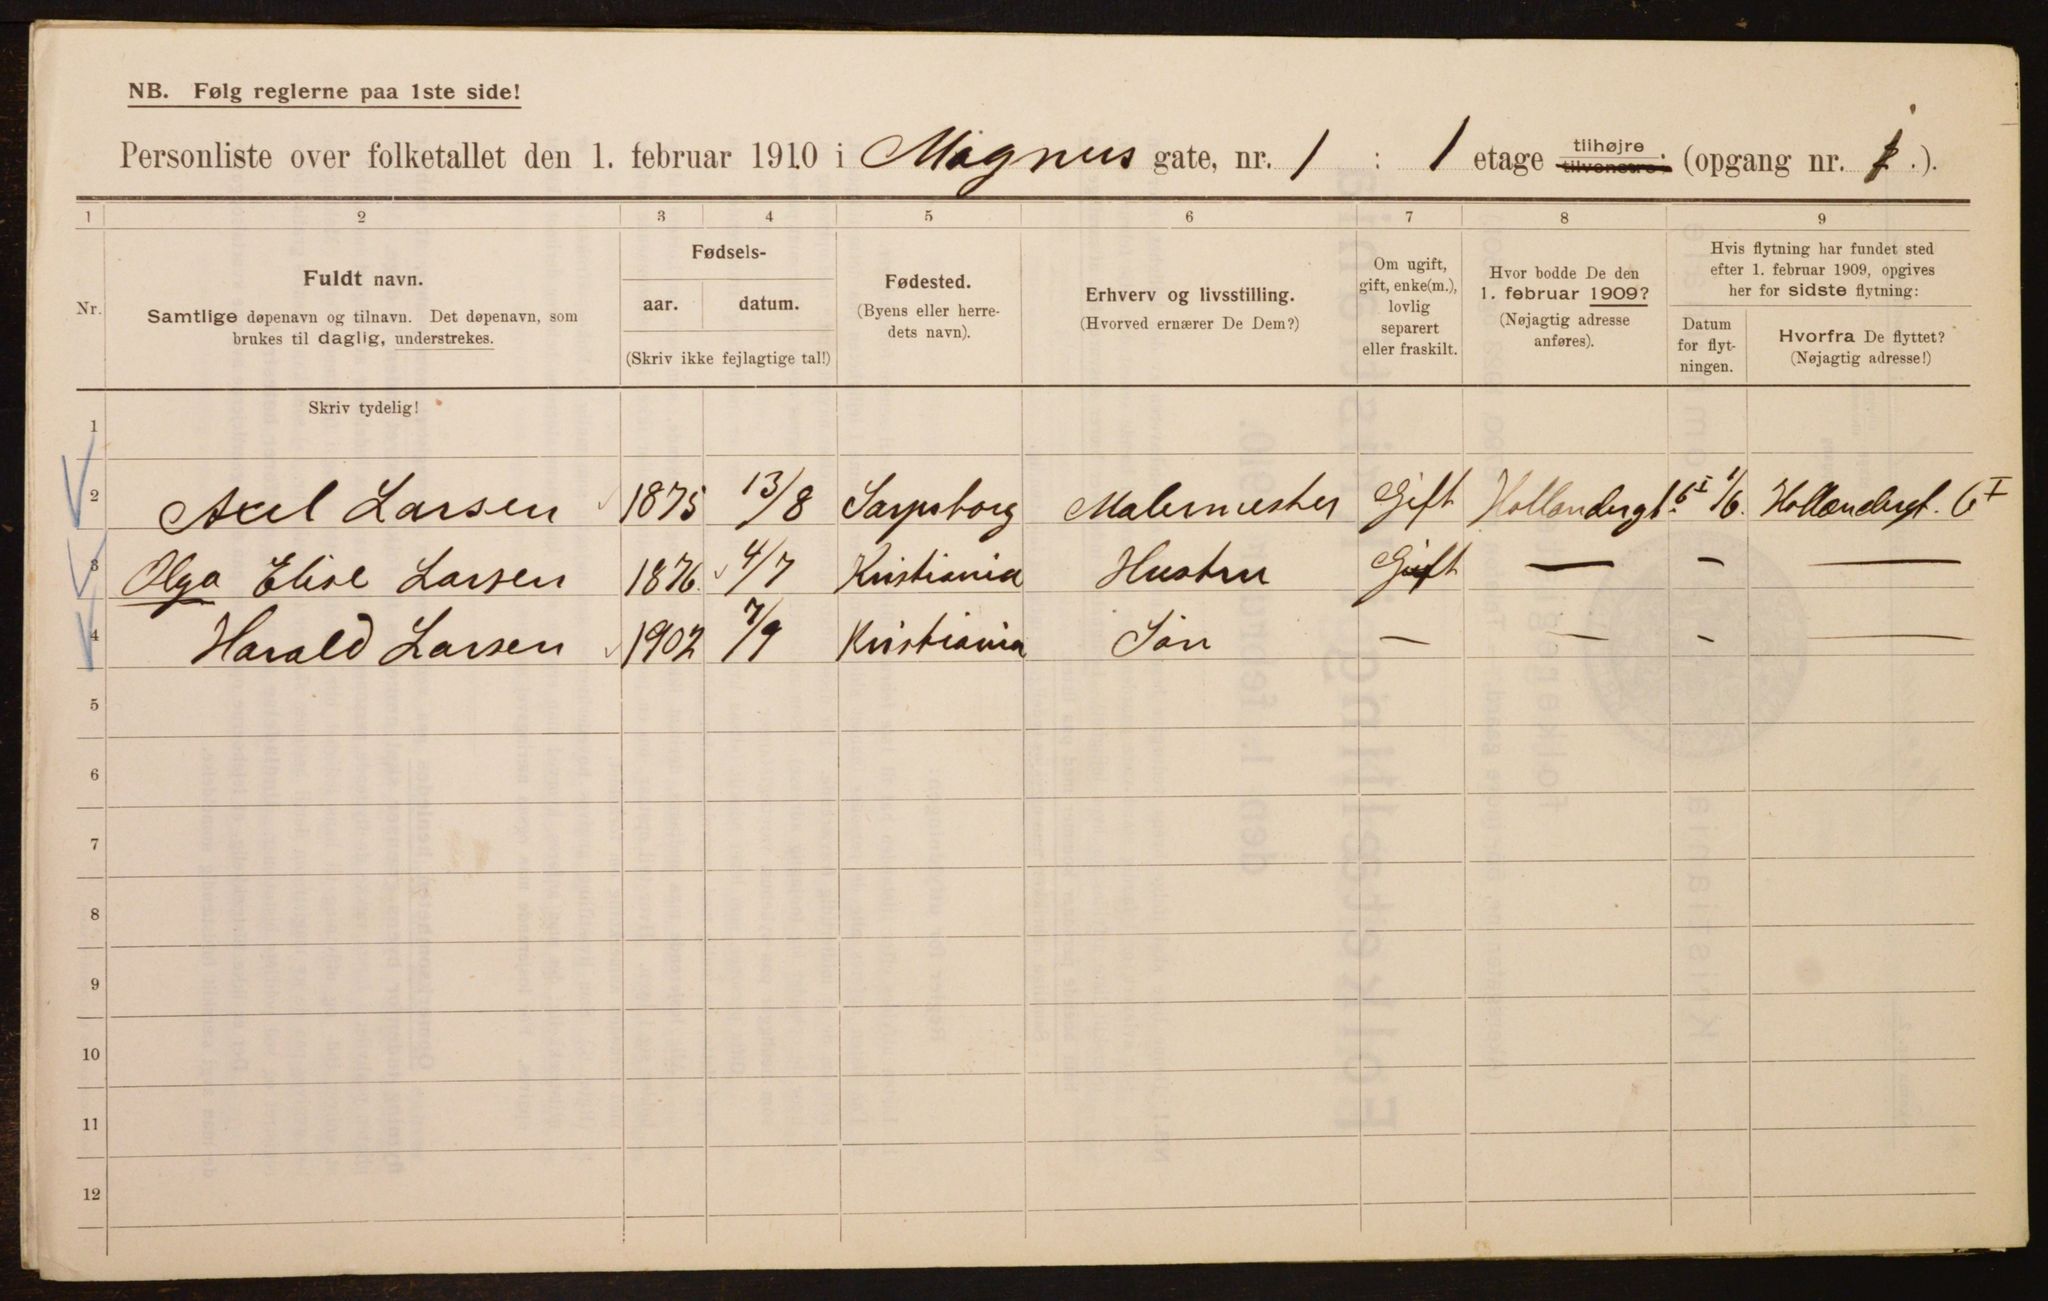 NB. Følg reglerne paa 1ste side!
Personliste over folketallet den 1. februar 1910 i Magnus gate, nr. 1 : 1 etage tilhøjre tilvenstre. (opgang nr. .).
1 2 3 4 5 6 7 8 9
Nr.
Fuldt navn.
Samtlige døpenavn og tilnavn. Det døpenavn, som
brukes til daglig, understrekes.
Fødsels-
aar. datum.
(Skriv ikke fejlagtige tal!)
Fødested.
(Byens eller herre-
dets navn).
Erhverv og livsstilling.
(Hvorved ernærer De Dem?)
Om ugift,
gift, enke(m.),
lovlig
separert
eller fraskilt.
Hvor bodde De den
1. februar 1909?
(Nøjagtig adresse
anføres).
Hvis flytning har fundet sted
efter 1. februar 1909, opgives
her for sidste flytning:
Datum
for flyt-
ningen.
Hvorfra De flyttet?
(Nøjagtig adresse!)
Skriv tydelig!
1
2 Axel Larsen 1875 13/8 Sarpsborg Malermester Gift Hollendergt 6 I 1/6. Hollendergt. 6 I
3 Olga Elise Larsen 1876 4/7 Kristiania Hustru Gift — – —
4 Harald Larsen 1902 7/9 Kristiania Søn – – – —
5
6
7
8
9
10
11
12